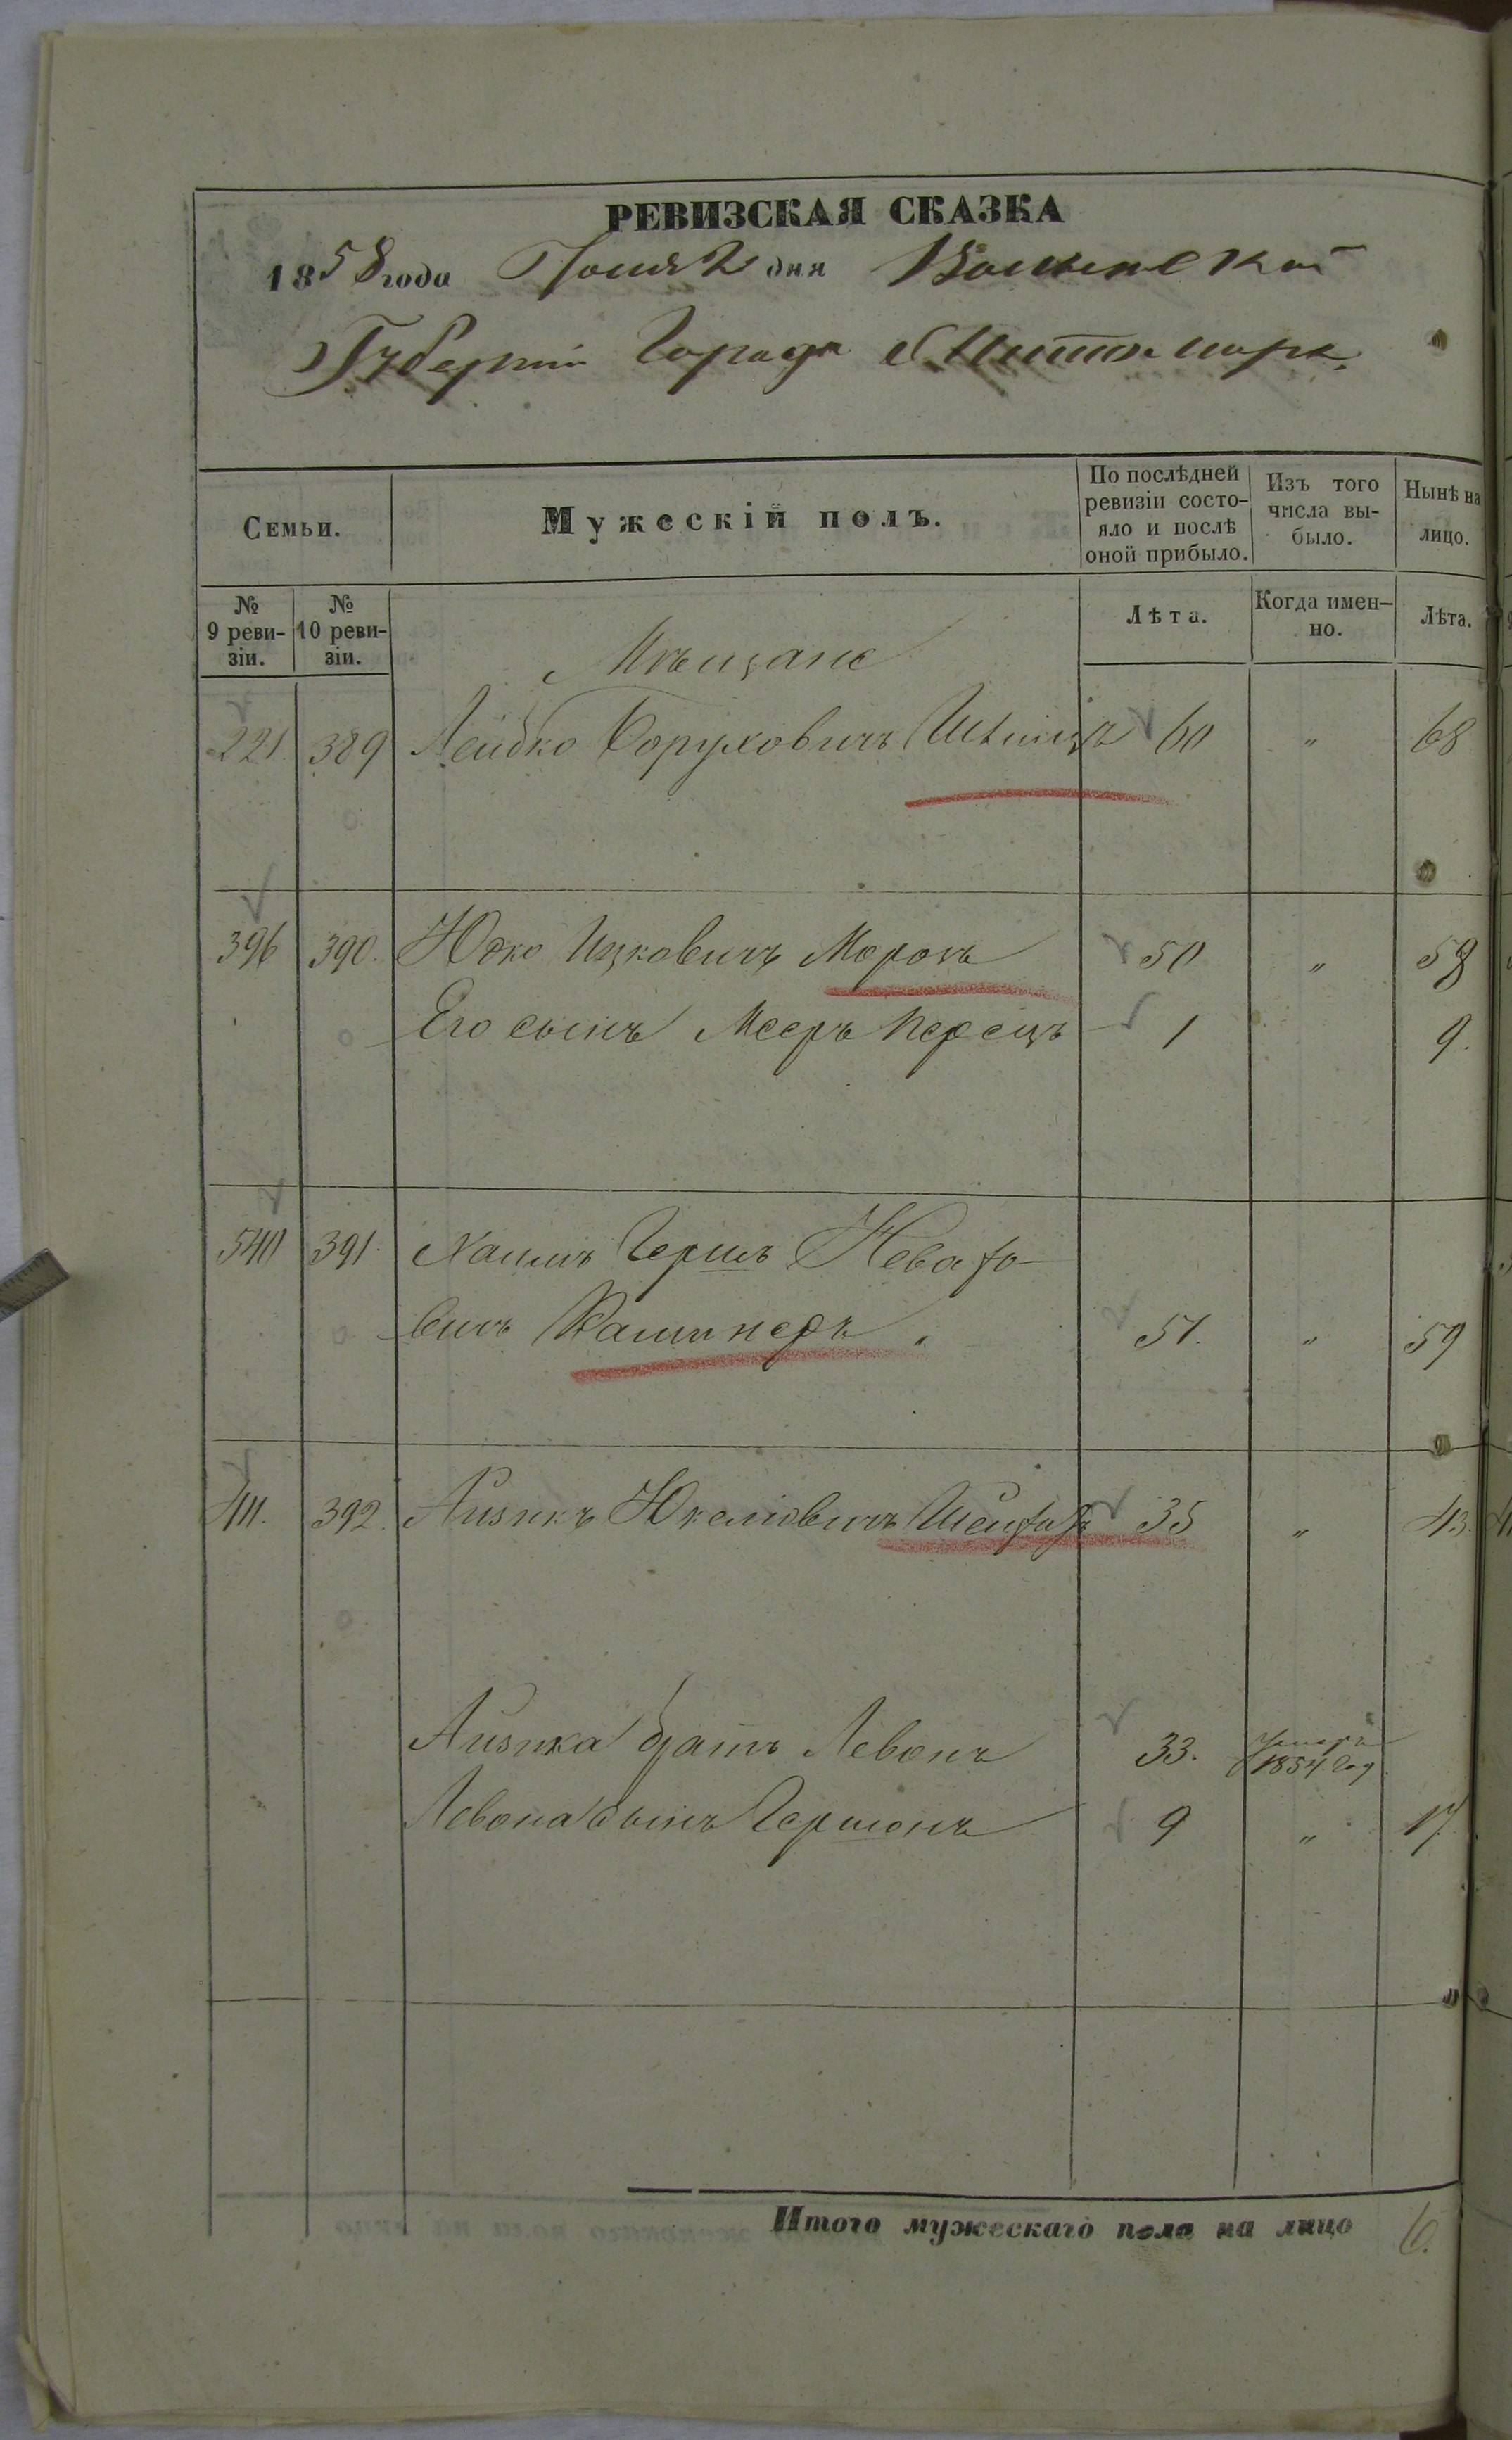 РЕВИЗСКАЯ СКАЗКА
1858 года Июня 2 дня Волынской
Губерніи Города Житомира
Семьи.
Мужескій полъ.
По послѣдней ревизіи состояло и послѣ оной прибыло.
Изъ того числа выбыло.
Нынѣ на лицо.
№ 9 ревизіи.
№ 10 ревизіи.
Лѣта.
Когда именно.
Лѣта.
Мѣщане
221 389 Лейбко Боруховичъ 60 " 68
396 390. Юдко Ицковичъ Морозъ 50 " 58
Его сынъ Мееръ Перецъ 1 9.
540 391. Хаимъ Гершъ
вичъ 51. " 59
411. 392. Айзикъ 35 " 43.
Айзика братъ Левонъ 33. умеръ 1854 год
Левона сынъ Гершонъ 9 " 17.
Итого мужескаго пола на лицо 6.